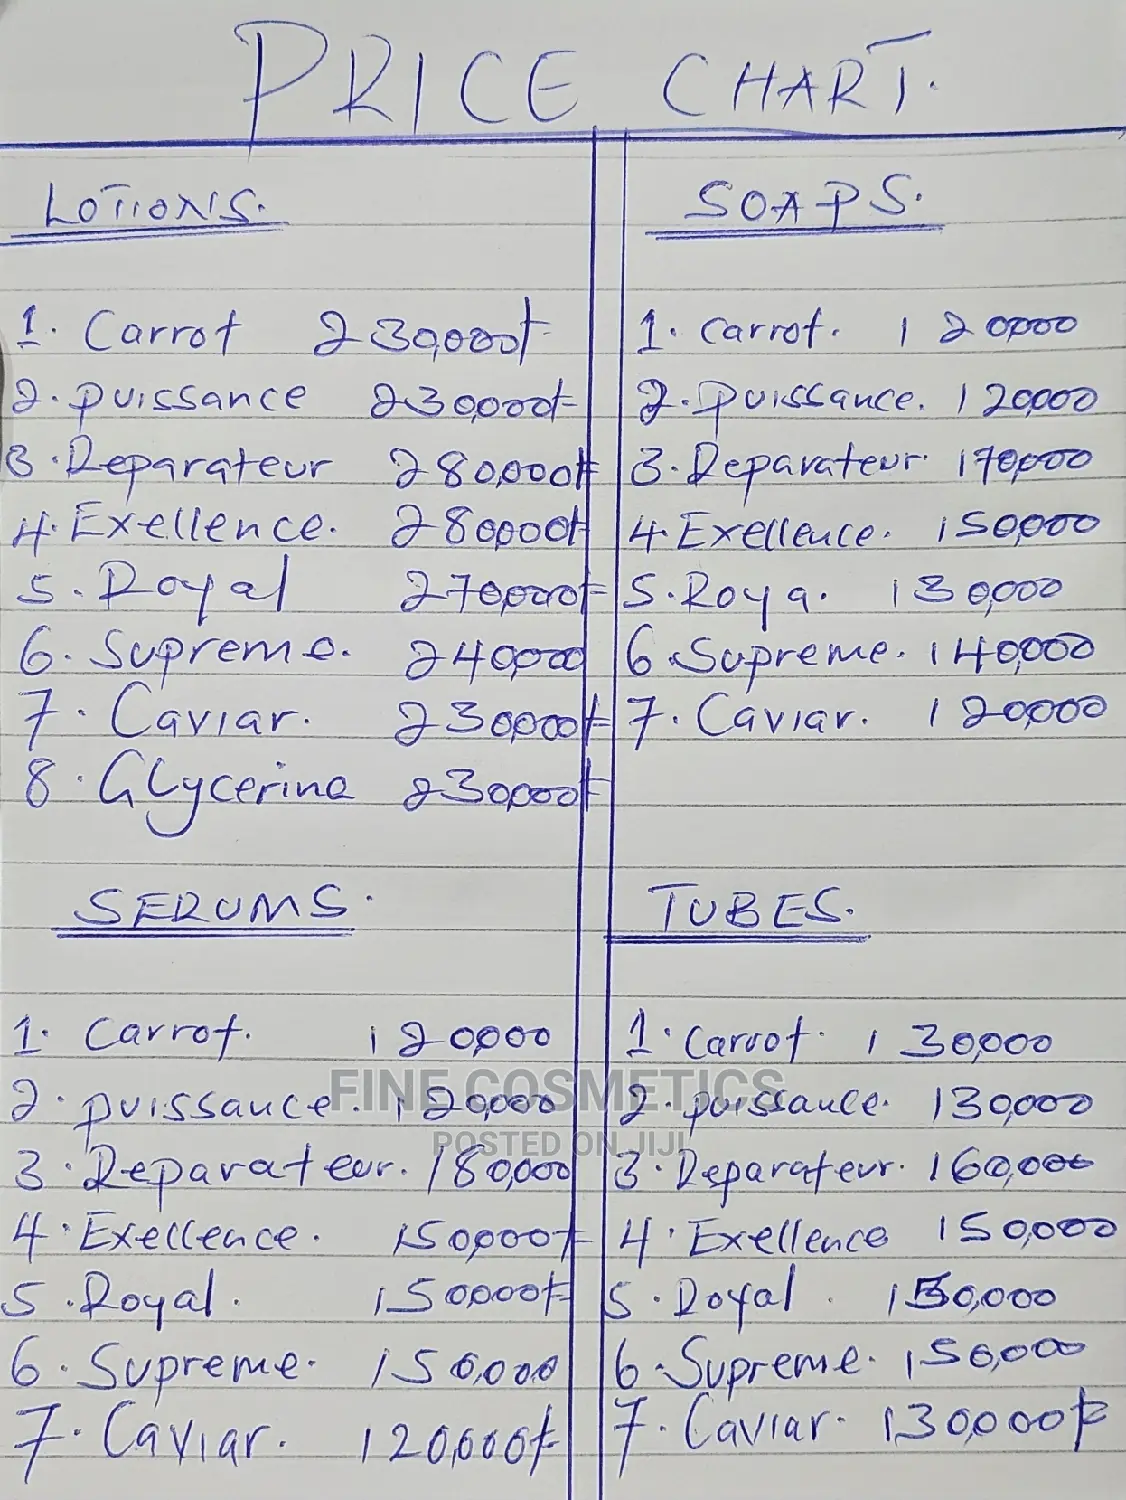 PRICE CHART.
LOTIONS.
1. Carrot 230,000/=
2. puissance 230,000/=
3. Reparateur 280,000/=
4. Exellence. 280,000/=
5. Royal 270,000/=
6. Supreme. 240,000
7. Caviar. 230,000/=
8. Glycerine 230,000/=
SOAPS.
1. Carrot. 120,000
2. Puissance. 120,000
3. Reparateur. 170,000
4. Exellence. 150,000
5. Roya. 130,000
6. Supreme. 140,000
7. Caviar. 120,000
SERUMS.
1. Carrot. 120,000
2. puissance. 120,000
3. Reparateur. 180,000
4. Exellence. 150,000/=
5. Royal. 150,000/=
6. Supreme. 150,000
7. Caviar. 120,000/=
TUBES.
1. Carrot. 130,000
2. puissance. 130,000
3. Reparateur. 160,000
4. Exellence 150,000
5. Royal. 150,000
6. Supreme. 150,000
7. Caviar. 130,000/=
FINE COSMETICS
POSTED ON JIJI